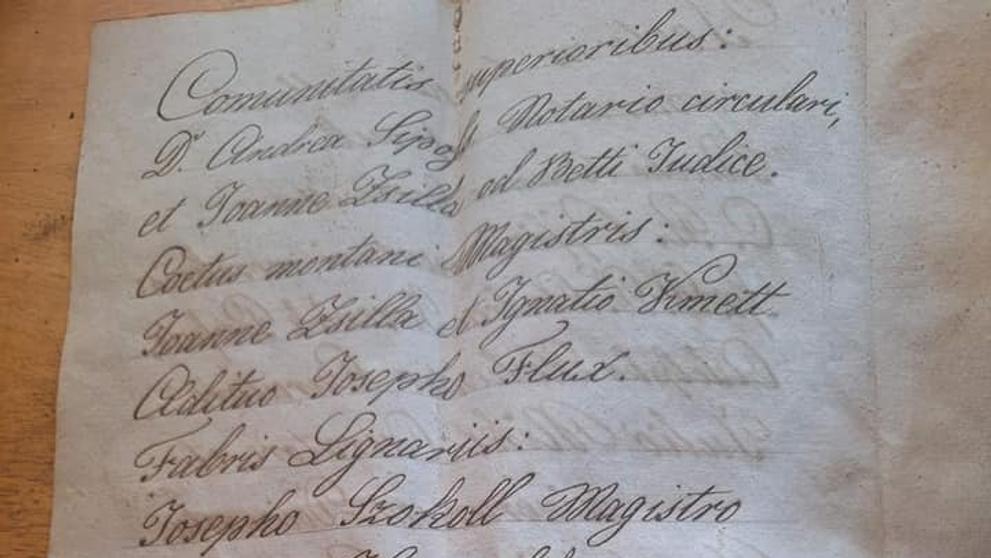 Comunitatis superioribus:
Dr. Andrea Sipos Notario circulari,
et Joanne Zsilla ed Betti Judice.
Coetus montani Magistris:
Joanne Zsilla et Ignatio Kmett
Aedituo Josepho Flux.
Fabris Lignariis:
Josepho Szokoll Magistro